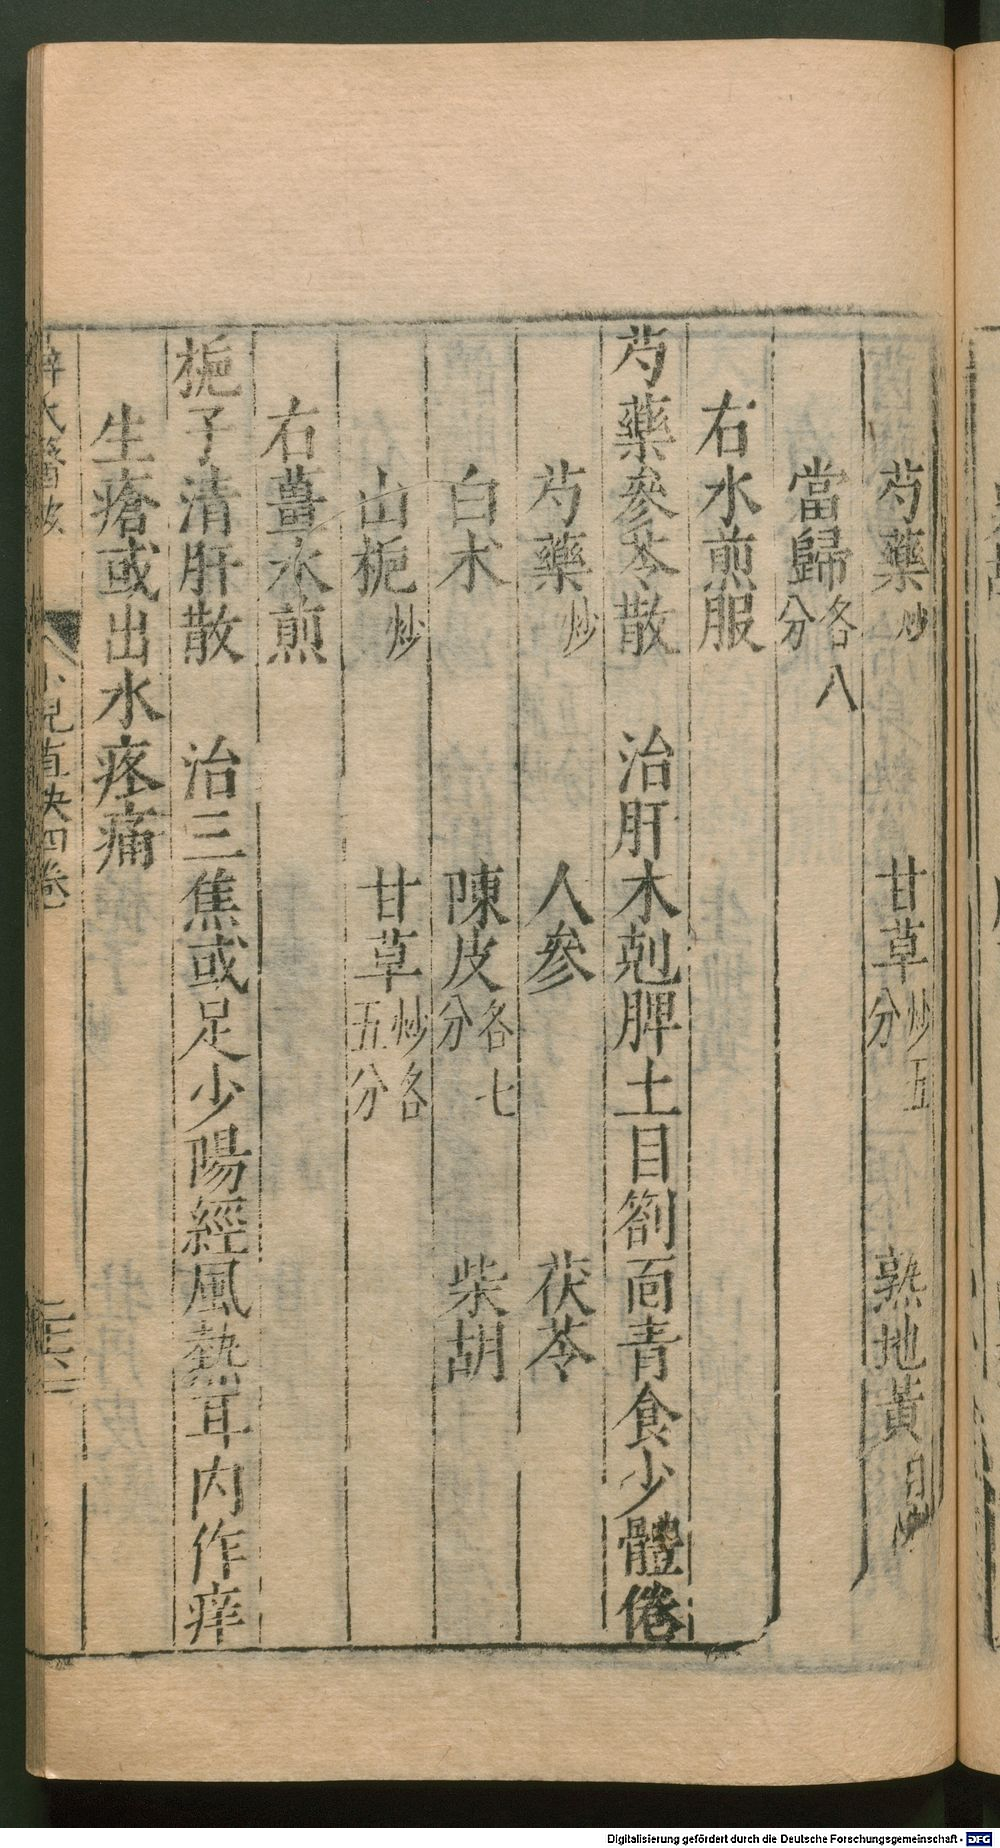 芍藥炒 甘草炒五分 熟地黃
當歸各八分
右水煎服
芍藥參苓散 治肝木剋脾土目劄面青食少體倦
芍藥炒 人參 茯苓
白朮 陳皮各七分 柴胡
山梔炒 甘草炒各五分
右薑水煎
梔子清肝散 治三焦或足少陽經風熱耳内作痒
生瘡或出水疼痛
小兒直訣四卷
Digitalisierung gefördert durch die Deutsche Forschungsgemeinschaft - DFG